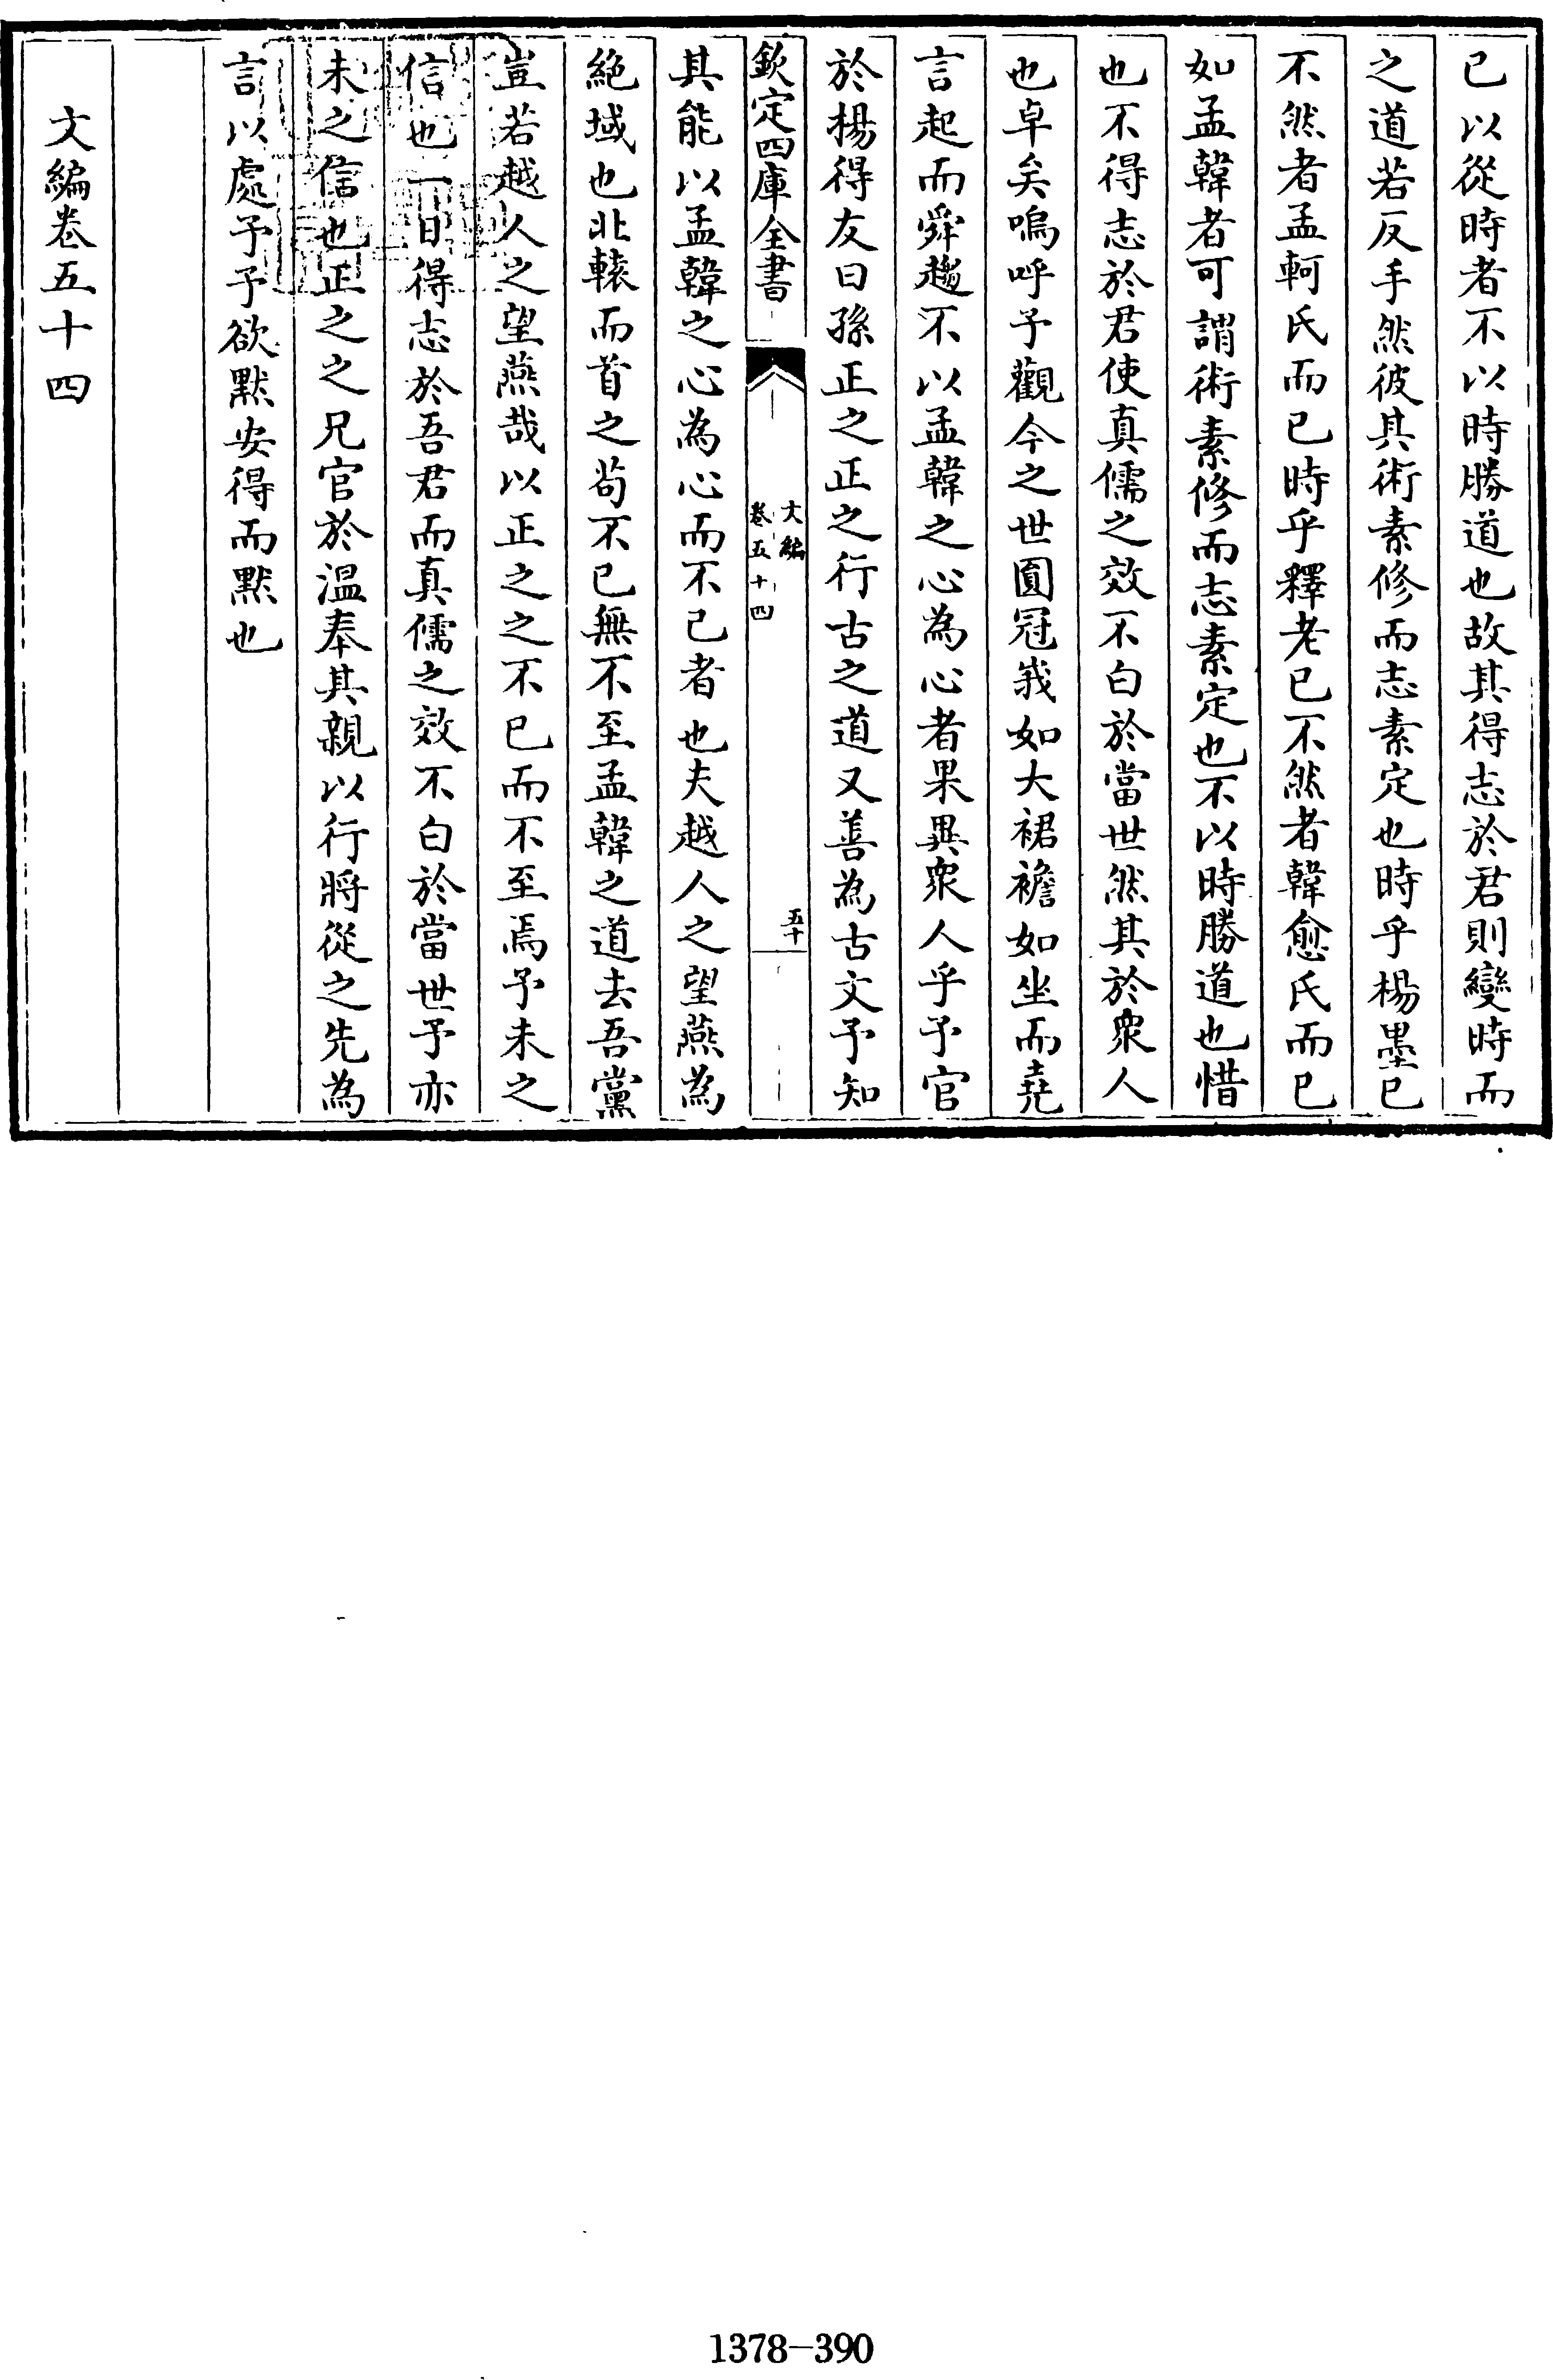 已以從時者不以時勝道也故其得志於君則變時而
之道若反手然彼其術素修而志素定也時乎楊墨已
不然者孟軻氏而已時乎釋老已不然者韓愈氏而已
如孟韓者可謂術素修而志素定也不以時勝道也惜
也不得志於君使真儒之效不白於當世然其於衆人
也卓矣嗚呼予觀今之世圓冠峩如大裙襜如坐而堯
言起而舜趨不以孟韓之心為心者果異衆人乎予官
於楊得友曰孫正之正之行古之道又善為古文予知
欽定四庫全書
文編
卷五十四
五十
其能以孟韓之心為心而不已者也夫越人之望燕為
絶域也北轅而首之苟不已無不至孟韓之道去吾黨
豈若越人之望燕哉以正之之不已而不至焉予未之
信也一日得志於吾君而真儒之效不白於當世予亦
未之信也正之之兄官於溫奉其親以行將從之先為
言以處予予欲默安得而默也
文編卷五十四
1378-390